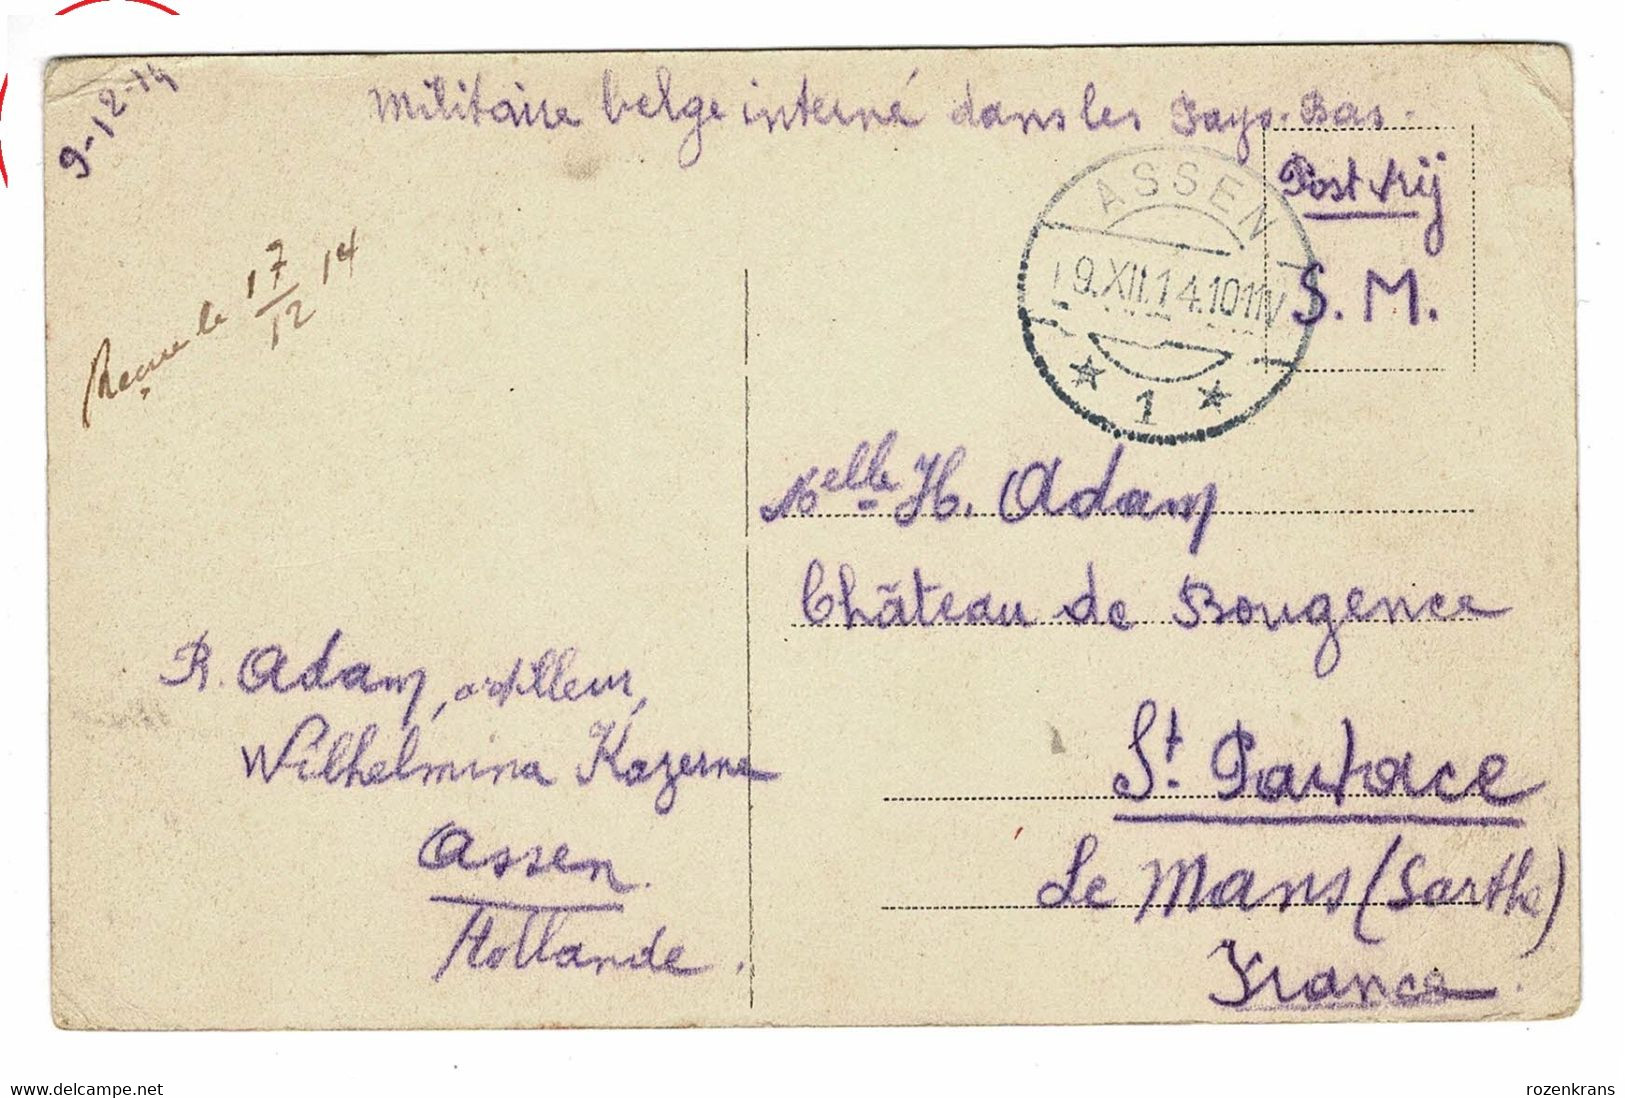 9-12-14
Militaire belge interné dans les Pays-Bas.
Post vrij
S. M.
ASSEN
9.XII.14.10 11V
1
Recue le 17/12 14
Melle H. Adam
Château de Bougence
St. Pavace
Le Mans (Sarthe)
France.
R. Adam, artilleur,
Wilhelmina Kazerne
Assen.
Hollande.
www.delcampe.net
rozenkrans